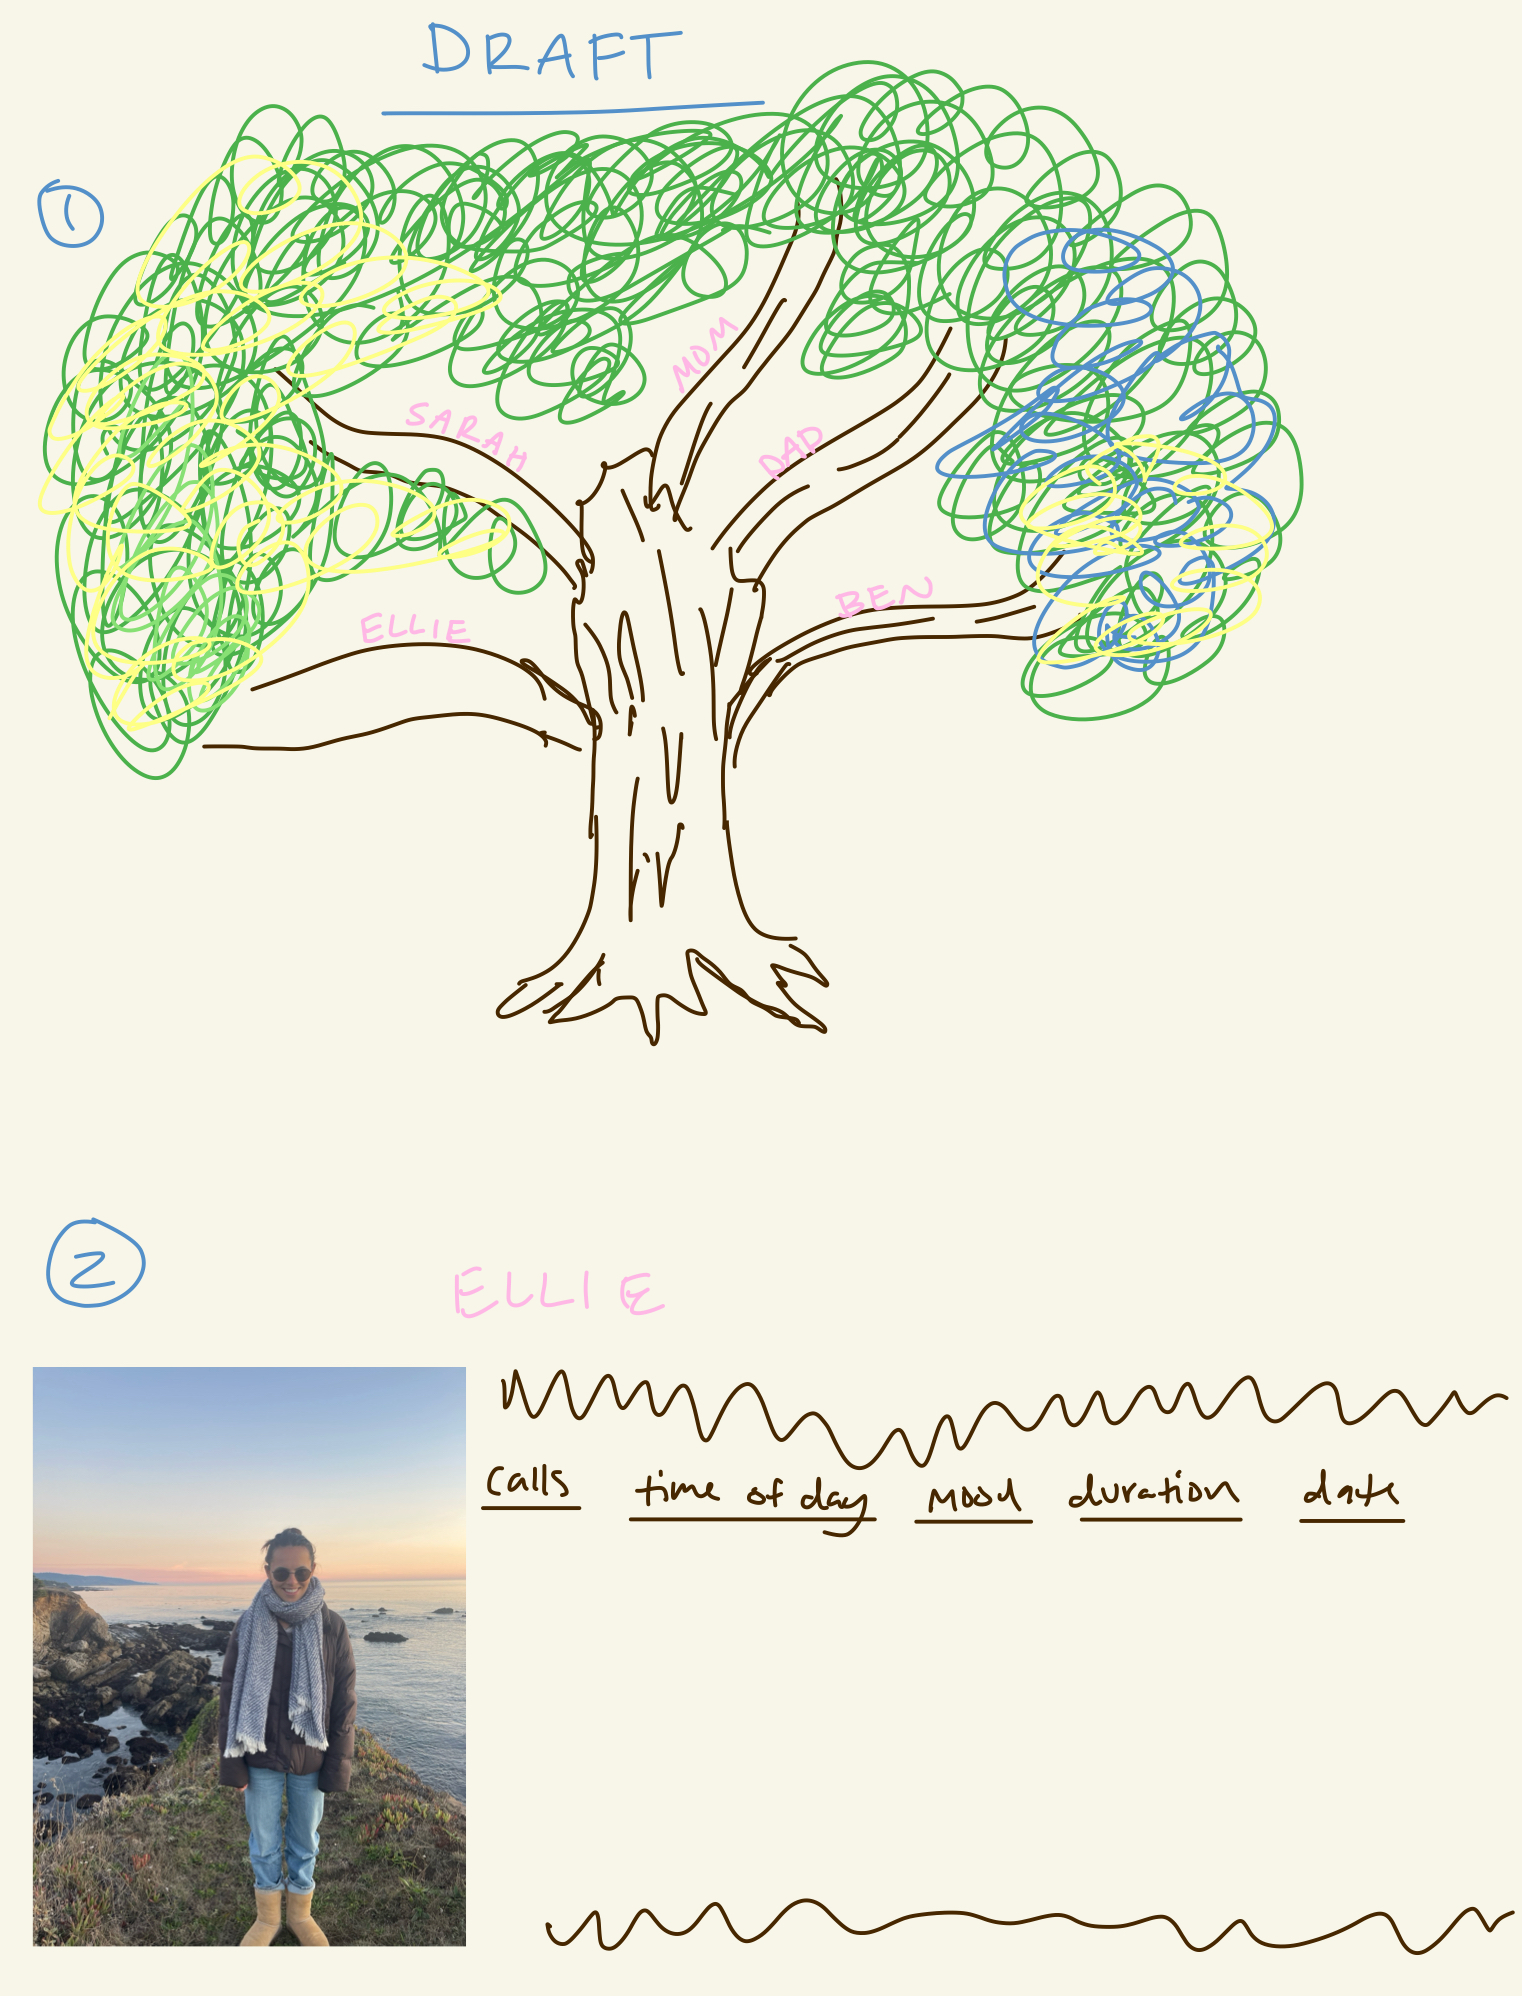 DRAFT
1
MOM
SARAH
DAD
BEN
ELLIE
2
ELLIE
Calls time of day Mood duration date